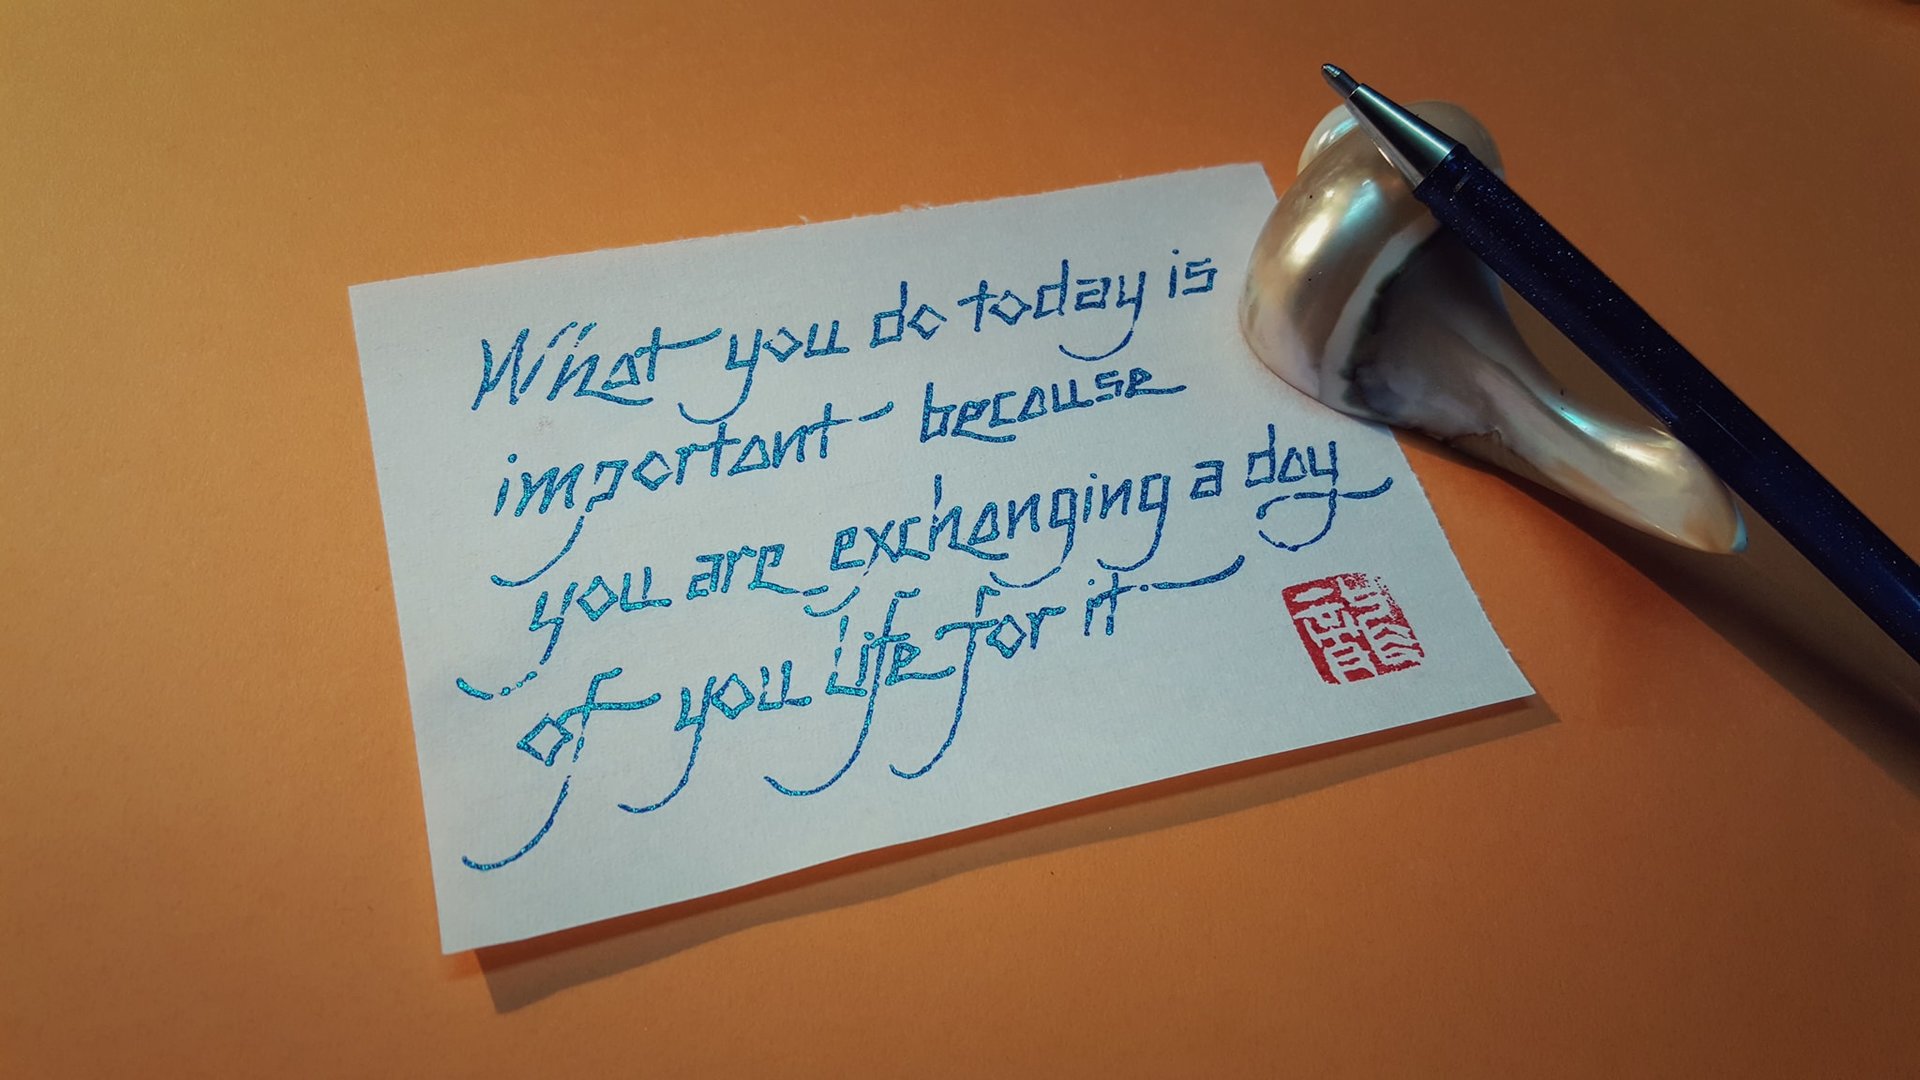 What you do today is
important - because
you are exchanging a day
of you life for it -